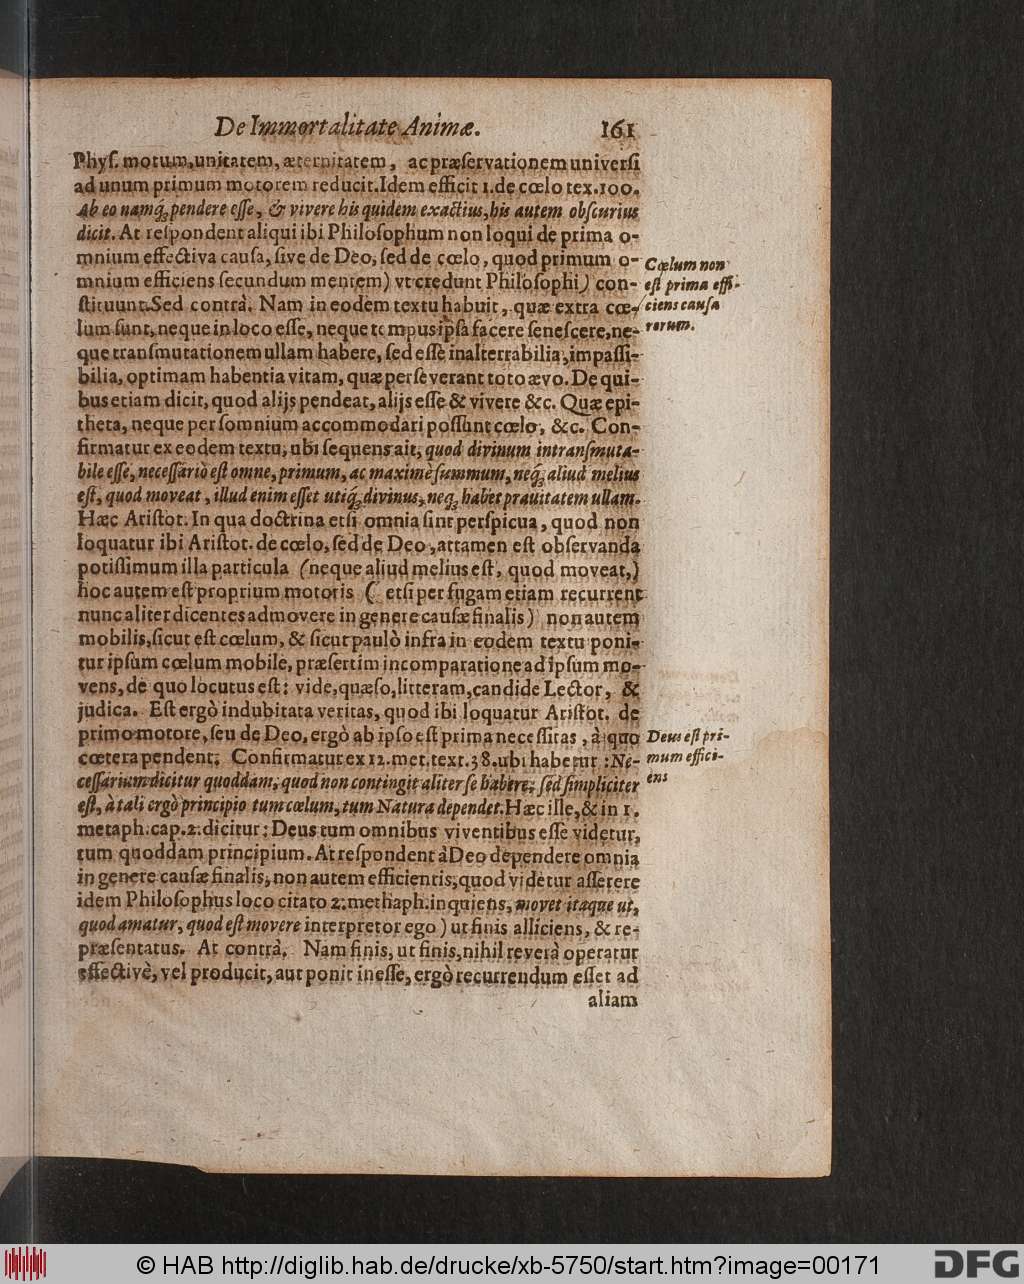 De Immortalitate Animæ. 161
Phyſ. motum, unitatem, æternitatem, ac præſervationem univerſi
ad unum primum motorem reducit. Idem efficit 1. de cœlo tex. 100.
Ab eo namq́; pendere eſſe, & vivere his quidem exactius, his autem obſcurius
dicit. At reſpondent aliqui ibi Philoſophum non loqui de prima o-
mnium effectiva cauſa, ſive de Deo, ſed de cœlo, quod primum o-
mnium efficiens ſecundum mentem) vt credunt Philoſophi) con-
ſtituunt. Sed contrà. Nam in eodem textu habuit, quæ extra cœ-
lum ſunt, neque in loco eſſe, neque tempus ipſa facere ſeneſcere, ne-
que tranſmutationem ullam habere, ſed eſſe inalterrabilia, impaſſi-
bilia, optimam habentia vitam, quæ perſeverant toto ævo. De qui-
bus etiam dicit, quod alijs pendeat, alijs eſſe & vivere &c. Quæ epi-
theta, neque per ſomnium accommodari poſſunt cœlo, &c. Con-
firmatur ex eodem textu, ubi ſequens ait, quod divinum intranſmuta-
bile eſſe, neceſſariò eſt omne, primum, ac maximè ſummum, neq́; aliud melius
eſt, quod moveat, illud enim eſſet utiq́; divinus, neq; habet pravitatem ullam.
Hæc Ariſtot. In qua doctrina etſi omnia ſint perſpicua, quod non
loquatur ibi Ariſtot. de cœlo, ſed de Deo, attamen eſt obſervanda
potiſſimum illa particula (neque aliud melius eſt, quod moveat,)
hoc autem eſt proprium motoris ( etſi per fugam etiam recurrent
nunc aliter dicentes admovere in genere cauſæ finalis) non autem
mobilis, ſicut eſt cœlum, & ſicut paulò infra in eodem textu poni-
tur ipſum cœlum mobile, præſertim in comparatione ad ipſum mo-
vens, de quo locutus eſt: vide, quæſo, litteram, candide Lector, &
judica. Eſt ergò indubitata veritas, quod ibi loquatur Ariſtot. de
primo motore, ſeu de Deo, ergò ab ipſo eſt prima neceſſitas, à quo
cœtera pendent; Confirmatur ex 12. met. text. 38. ubi habetur: Ne-
ceſſarium dicitur quoddam, quod non contingit aliter ſe habere; ſed ſimpliciter
eſt, à tali ergò principio tum cœlum, tum Natura dependet. Hæc ille, & in 1.
metaph. cap. 2. dicitur; Deus tum omnibus viventibus eſſe videtur,
tum quoddam principium. At reſpondent à Deo dependere omnia
in genere cauſæ finalis, non autem efficientis, quod videtur aſſerere
idem Philoſophus loco citato 2. methaph. inquiens, movet itaque ut,
quod amatur, quod eſt movere interpretor ego) ut finis alliciens, & re-
præſentatus. At contrà. Nam finis, ut finis, nihil reverà operatur
effectivè, vel producit, aut ponit in eſſe, ergò recurrendum eſſet ad
aliam
Cœlum non
eſt prima effi-
ciens cauſa
rerum.
Deus eſt pri-
mum effici-
ens
© HAB http://diglib.hab.de/drucke/xb-5750/start.htm?image=00171
DFG